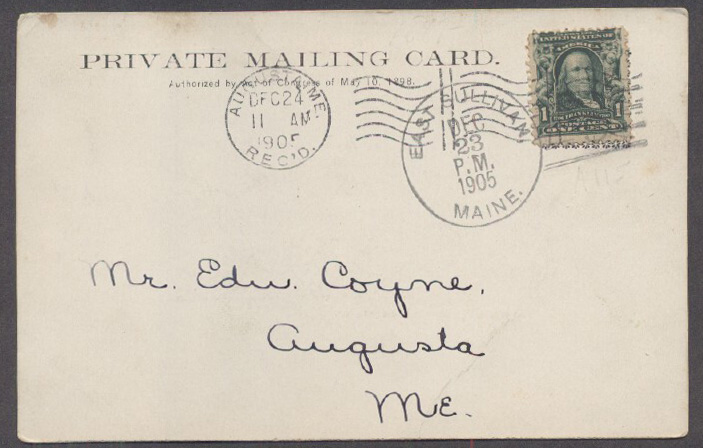 PRIVATE MAILING CARD.
Authorized by Act of Congress of May 10, 1898.
AUGUSTA, ME.
DEC 24
11 AM
1905
REC'D.
EAST SULLIVAN
DEC
23
P.M.
1905
MAINE.
UNITED STATES OF
AMERICA
1 1
FRANKLIN
ONE CENT
Mr. Edw. Coyne,
Augusta
Me.